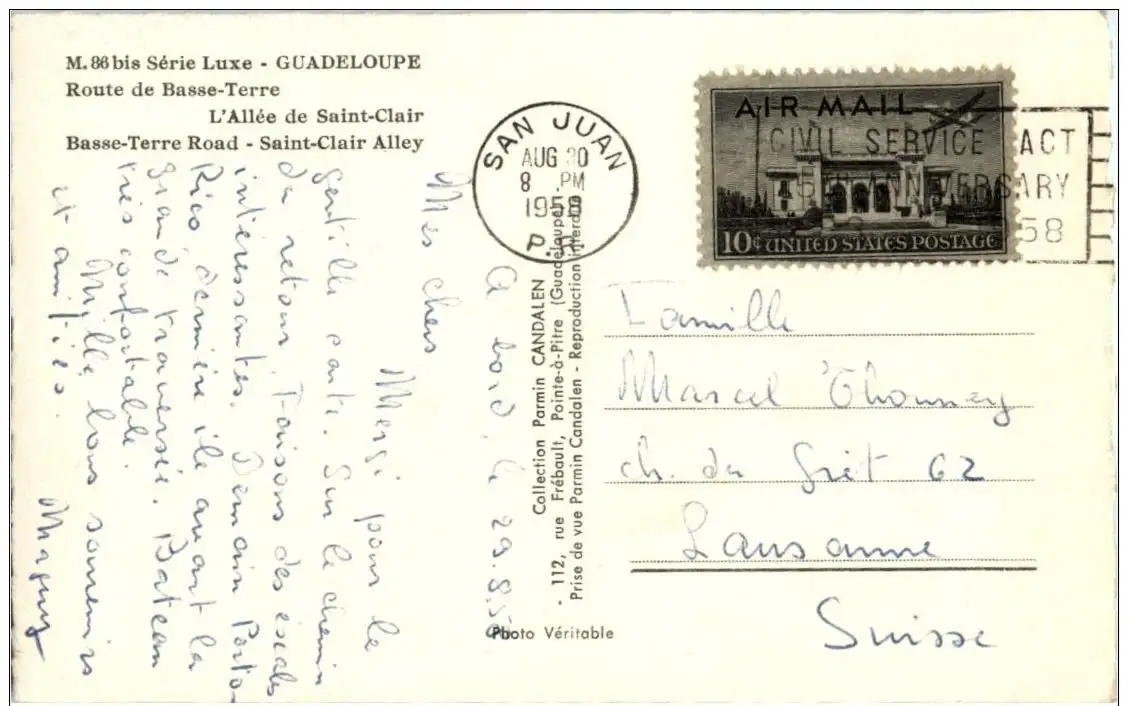 M. 86 bis Série Luxe - GUADELOUPE
Route de Basse-Terre
L'Allée de Saint-Clair
Basse-Terre Road - Saint-Clair Alley
SAN JUAN
AUG 30
8 PM
1958
P.R.
AIR MAIL
10¢ UNITED STATES POSTAGE
CIVIL SERVICE ACT
ANNIVERSARY
58
A bord, le 29.8.58
Mes chers
Merçi pour la
gentille carte. Sur le chemin
du retour, faisons des escales
intéressantes. Demain Porto-
Rico dernière île avant la
grande traversée. Bateau
très confortable.
Mille bons souvenirs
et amitiés.
Maguy
Collection Parmin CANDALEN
- 112, rue Frébault, Pointe-à-Pitre (Guadeloupe)
Prise de vue Parmin Candalen - Reproduction interdite
Photo Véritable
Famille
Marcel Thonney
ch. du Grêt 62
Lausanne
Suisse